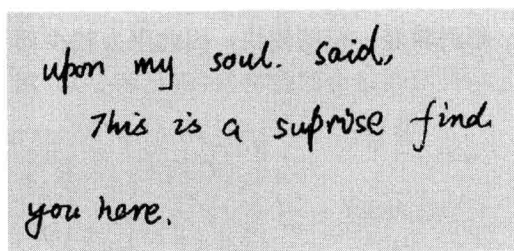 upon my soul. said,,
This is a suprise find.
you here.